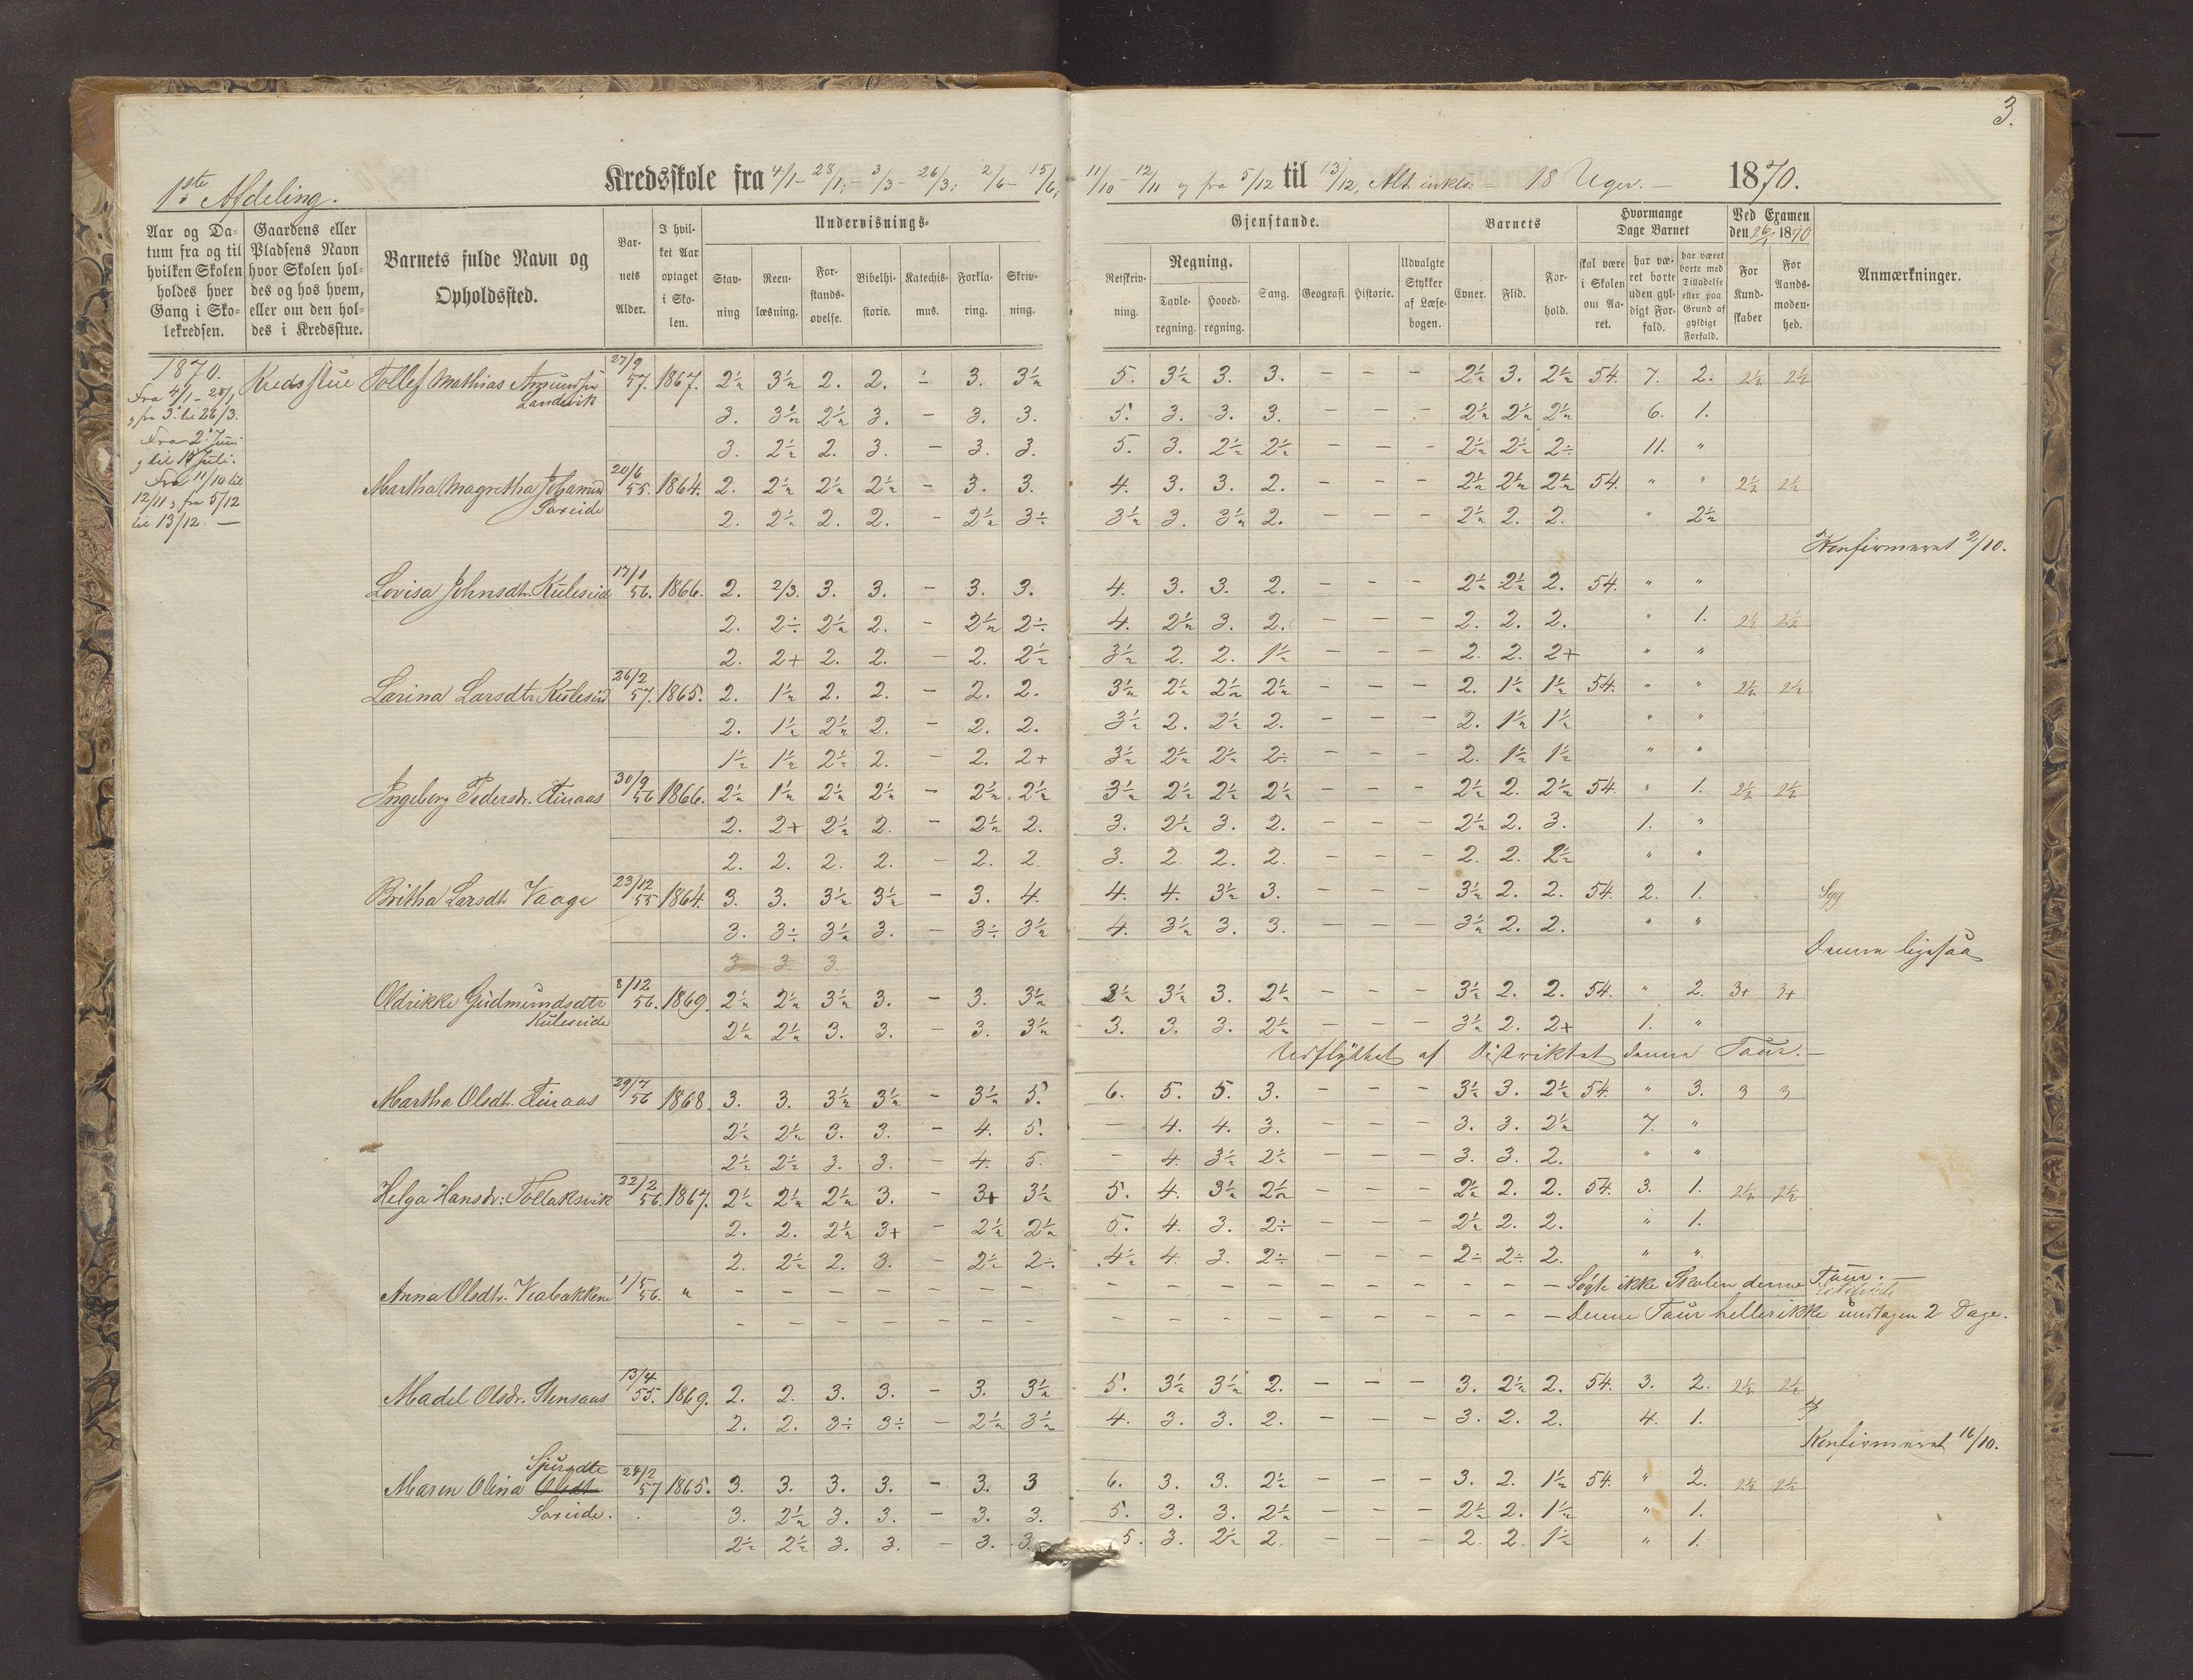 3.
1ste Afdeling.
Kredsskole fra 4/1 - 28/1; - 3/3 - 26/3; 2/6 - 15/6; 11/10 - 12/11 og fra 5/12 til 13/12, Alt inkls. - 18 Uger. - 1870.
Aar og Datum fra og til hvilken Skolen holdes hver Gang i Skolekredsen.
Gaardens eller Pladsens Navn hvor Skolen holdes og hos hvem, eller om den holdes i Kredsstue.
Barnets fulde Navn og Opholdssted.
Barnets Alder.
I hvilket Aar optaget i Skolen.
Undervisnings=
Stavning
Reenlæsning.
Forstandsøvelse.
Bibelhistorie.
Katechismus.
Forklaring.
Skrivning.
Gjenstande.
Retskrivning.
Regning.
Tavleregning.
Hovedregning.
Sang.
Geografi.
Historie.
Udvalgte Stykker af Læsebogen.
Barnets
Evner.
Flid.
Forhold.
Hvormange Dage Barnet
skal være i Skolen om Aaret.
har været borte uden gyldigt Forfald.
har været borte med Tilladelse eller paa Grund af gyldigt Forfald.
Ved Examen den 26/1 1870
For Kundskaber
For Aandsmodenhed.
Anmærkninger.
1870.
Fra 4/1 - 28/1
og fra 3. til 26/3.
Fra 2. Juni
og til 15 Juli.
Fra 11/10 til
12/11, fra 5/12
til 13/12. -
Kredsstue
Tollef Mathias Amundsøn Landevik 27/9 57. 1867. 2½ 3½ 2. 2. - 3. 3½ 5. 3½ 3. 3. - - - 2½ 3. 2½ 54. 7. 2. 2½ 2½
3. 3½ 2½ 3. - 3. 3. 5. 3. 3. 3. - - - 2½ 2½ 2½ 6. 1.
3. 2½ 2. 3. - 3. 3. 5. 3. 2½ 2½ - - - 2½ 2½ 2÷ 11. "
Martha Magretha Saxeide 20/6 55. 1864. 2. 2½ 2½ 2½ - 3. 3. 4. 3. 3. 2. - - - 2½ 2½ 2½ 54. " " 2½ 2½
2. 2½ 2. 2. - 2½ 3÷ 3½ 3. 3½ 2. - - - 2½ 2. 2. " 2½
Konfirmeret 2/10.
Lovisa Johnsdtr. Kuleseid 17/1 56. 1866. 2. 2/3. 3. 3. - 3. 3. 4. 3. 3. 2. - - - 2½ 2½ 2. 54. " "
2. 2÷ 2½ 2. - 2½ 2÷ 4. 2½ 3. 2. - - - 2. 2. 2. " 1. 2½ 2½
2. 2+ 2. 2. - 2. 2½ 3½ 2. 2. 1½ - - - 2. 2. 2+ " "
Larina Larsdtr Kuleseid 26/2 57. 1865. 2. 1½ 2. 2. - 2. 2. 3½ 2½ 2½ 2½ - - - 2. 1½ 1½ 54. " " 2½ 2½
2. 1½ 2½ 2. - 2. 2. 3½ 2. 2½ 2. - - - 2. 1½ 1½ " "
1½ 1½ 2½ 2. - 2. 2+ 3½ 2½ 2½ 2÷ - - - 2. 1½ 1½ " "
Ingeborg Pedersdr. Tinaas 30/9 56 1866. 2½ 1½ 2½ 2½ - 2½ 2½ 3½ 2½ 2½ 2½ - - - 2½ 2. 2½ 54. " 1. 2½ 2½
2. 2+ 2½ 2. - 2½ 2. 3. 2½ 3. 2. - - - 2½ 2. 3. 1. "
2. 2. 2. 2. - 2. 2 3. 2 2. 2. - - - 2. 2. 2½ " "
Britha Larsdtr Vaage 23/12 55 1864. 3. 3. 3½ 3½ - 3. 4. 4. 4. 3½ 3. - - - 3½ 2. 2. 54. 2. 1. Syg
3. 3÷ 3½ 3. - 3÷ 3½ 4. 3½ 3. 3. - - - 3½ 2. 2. " "
3 3 3
Denne ligesaa
Oldrikke Gudmundsdtr Kuleseide 8/12 56. 1869. 2½ 2½ 3½ 3. - 3. 3½ 3½ 3½ 3. 2½ - - - 3½ 2. 2. 54. " 2. 3+ 3+
2½ 2½ 3. 3. - 3. 3½ 3. 3. 3. 2½ - - - 3½ 2. 2+ 1. "
Udflyttet af Distriktet denne Tour. -
Martha Olsdtr. Tinaas 29/7 56 1868. 3. 3. 3½ 3½ - 3½ 5. 6. 5. 5. 3. - - - 3½ 3. 2½ 54. " 3. 3 3
2½ 2½ 3. 3. - 4. 5. - 4. 4. 3. - - - 3. 3. 2½ 7. "
2½ 2½ 3. 3. - 4. 5. - 4. 3½ 2½ - - - 3. 3. 2. " "
Helga Hansdr: Tollaksvik 22/2 56. 1867. 2½ 2½ 2½ 3. - 3+ 3½ 5. 4. 3½ 2½ - - - 2½ 2. 2. 54. 3. 1. 2½ 2½
2. 2. 2½ 3+ - 2½ 2½ 5. 4. 3. 2÷ - - - 2½ 2. 2. " 1.
2. 2½ 2. 3. - 2½ 2÷ 4½ 4. 3. 2÷ - - - 2÷ 2÷ 2. " "
Anna Olsdtr. Veabakkene 1/5 56. " - - - - - - - - - - - - - - - - - Søgte ikke Skolen denne Tour. -
- - - - - - - - - - - - - - - - - Denne Tour hellerikke undtagen 2 Dage.
Madel Olsdr. Stensaas 13/4 55. 1869. 2. 2. 3. 3. - 3. 3½ 5. 3½ 3½ 2. - - - 3. 2½ 2. 54. 3. 2. 2½ 2½
2. 2. 3÷ 3÷ - 2½ 3½ 4. 3. 3. 2. - - - 3. 2. 2. 4. 1.
Konfirmeret 16/10.
Maren Olina Olsdt Saxeide. 24/2 57 1865. 3. 3. 3. 3. - 3. 3 6. 3. 3. 2½ - - - 3. 2. 1½ 54. " 2. 2½ 2½
3. 2½ 3. 3. - 3. 3. 5. 3. 3. 2½ - - - 2½ 2. 1½ " 1.
2½ 2½ 3. 3. - 3. 3. 5. 3. 2½ 2. - - - 2. 2. 1½ " 1.